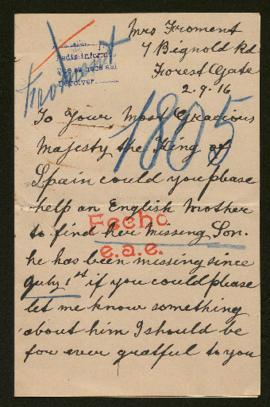 Mrs Froment
7 Bignold Rd
Forest Gate
2-9-16
Froment
1805
To Your Most Gracious
Majesty the King of
Spain could you please
help an English Mother
to find her missing Son.
Fecha
e.a.e.
he has been missing since
July 1st if you could please
let me know something
about him I should be
for ever gratful to you